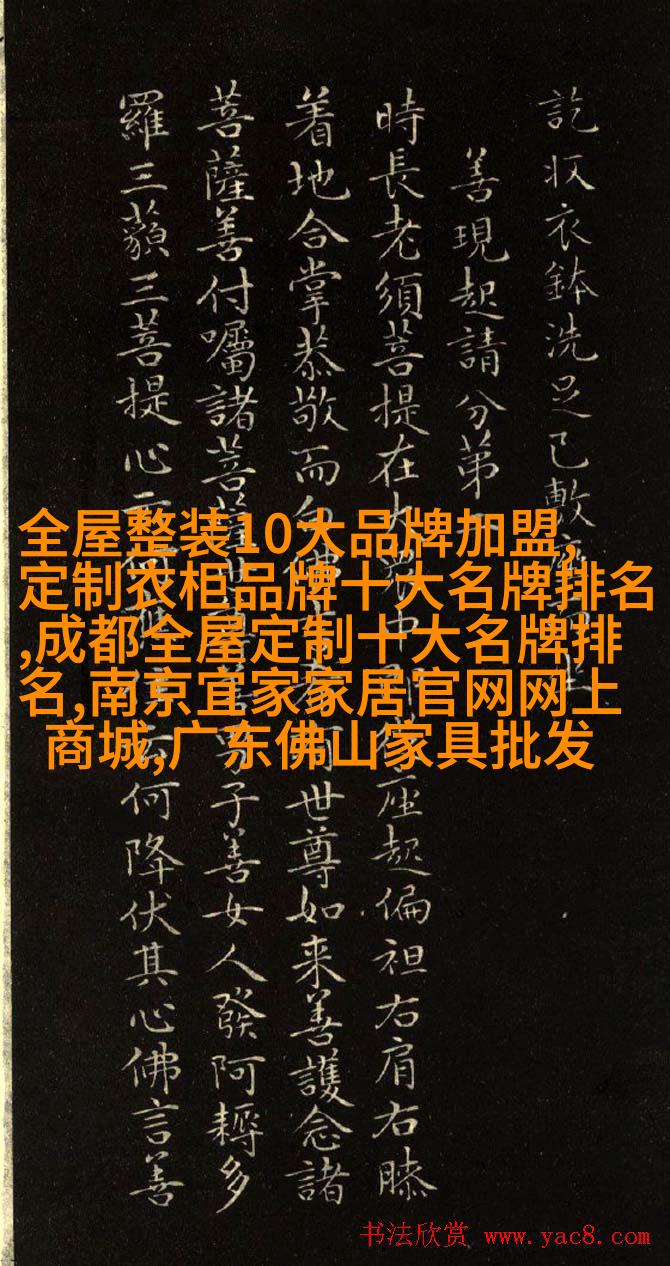 訖収衣鉢洗足已敷
善現起請分第
時長老須菩提在大衆中即從座起偏袒右肩右膝
着地合掌恭敬而白佛言希有世尊如来善護念諸
菩薩善付囑諸菩薩世尊善男子善女人發阿耨多
羅三藐三菩提心云何應住云何降伏其心佛言善
全屋整装10大品牌加盟,
定制衣柜品牌十大名牌排名
,成都全屋定制十大名牌排
名,南京宜家家居官网网上
商城,广东佛山家具批发
书法欣赏 www.yac8.com